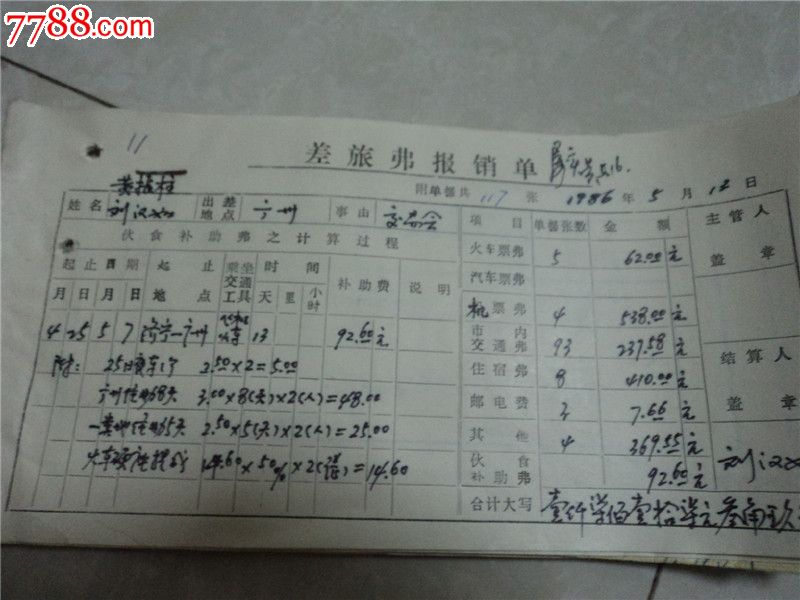 7788.com
11
差旅弗报销单
附单据共 117 张 1986 年 5 月 12 日
姓名 刘汉 出差地点 广州 事由 交易会
伙食补助弗之计算过程
起止日期 起止地点 乘坐交通工具 时间 补助费 说明
月 日 月 日 天 里 小时
4 25 5 7 济宁—广州 飞机 火车 13 92.60元
附: 25日 2.50×2=5.00
广州住勤8天 3.00×8(天)×2(人)=48.00
住勤5天 2.50×5(天)×2(人)=25.00
火车硬座 14.60×50%×2=14.60
项目 单据张数 金额
火车票弗 5 62.00元
汽车票弗
机票弗 4 538.00元
市内交通弗 93 237.58元
住宿弗 8 410.00元
邮电费 3 7.66元
其他 4 369.55元
伙食补助弗 92.60元
合计大写 壹仟柒佰壹拾柒元叁角玖
主管人
盖章
结算人
盖章
刘汉